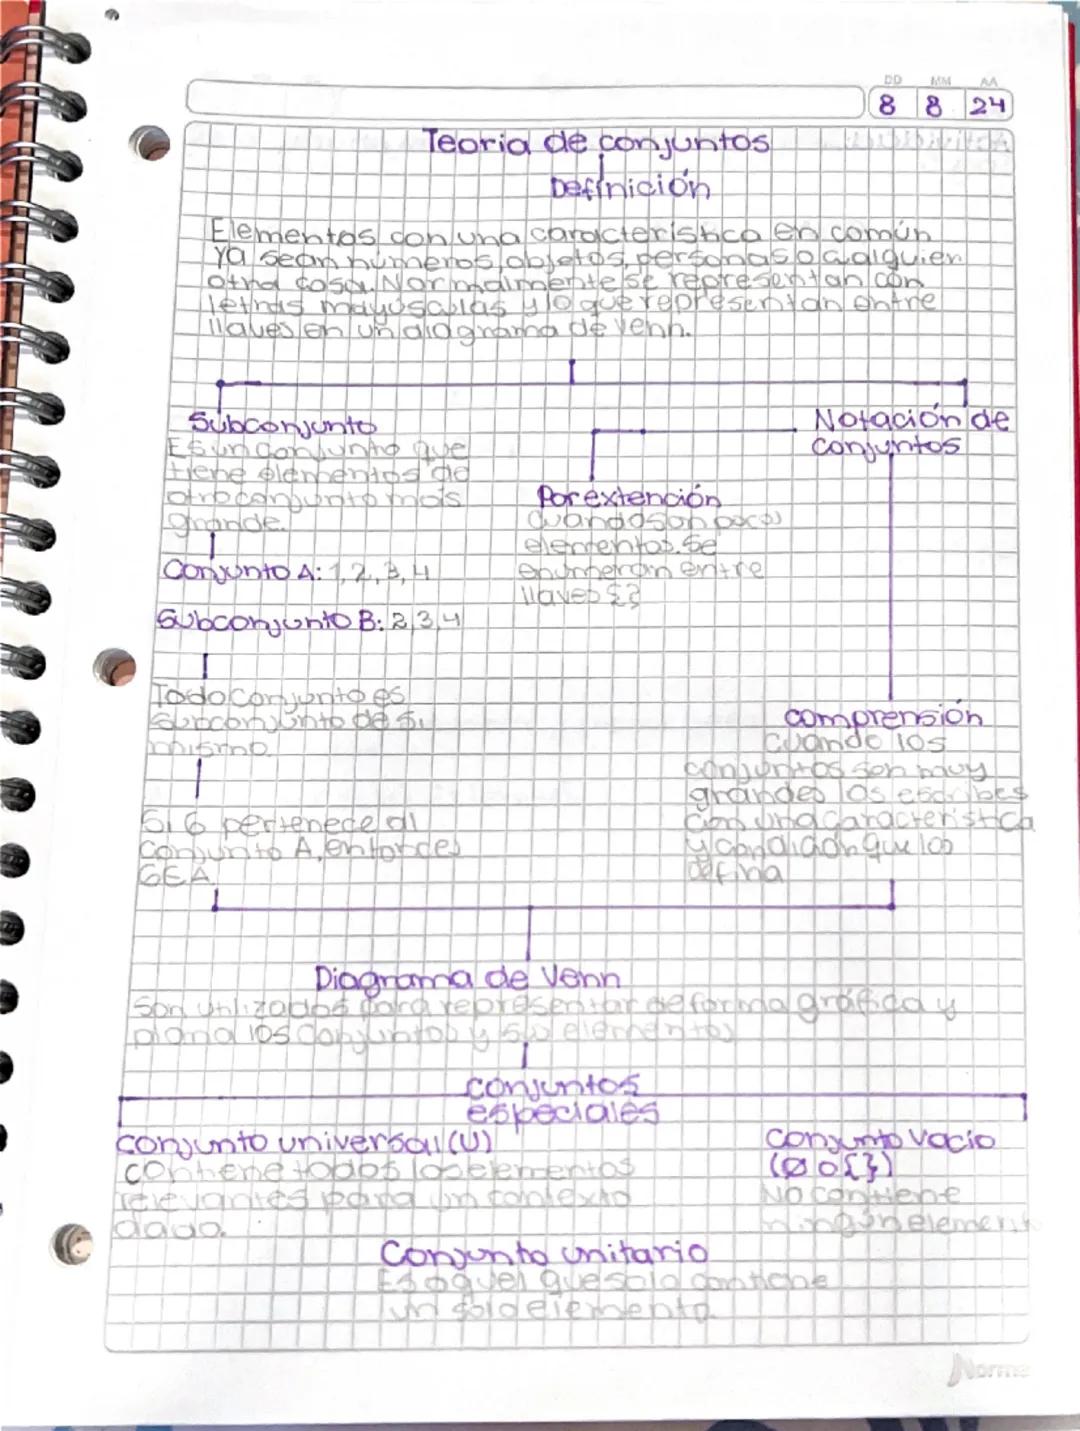 DD MM AA
8 8 24
Teoria de conjuntos
Definición
Elementos con una caracteristica en común
ya sean numeros, objetos, personas o cualquier
otra cosa. Normalmente se representan con
letras mayúsculas y lo que representan entre
llaves en un diagrama de venn.
Subconjunto
Es un conjunto que
tiene elementos de
otro conjunto mais
grande.
Conjunto A: 1, 2, 3, 4
Subconjunto B: 2, 3, 4
Todo conjunto es
subconjunto de si
mismo.
Si 6 pertenece al
conjunto A, entonces
6EA
Notación de
conjuntos
Por extención
Cuando son pocos
elementos. Se
enumeran entre
llaves {}
comprensión
Cuando los
conjuntos son muy
grandes los escribes
con una caracteristica
y condición que los
defina
Diagrama de Venn
Son utilizados para representar de forma gráfica y
plana los conjuntos y sus elementos
conjuntos
especiales
conjunto universal (U)
contiene todos los elementos
relevantes para un contexto
dado.
Conjunto vacio
(Ø o {})
No contiene
ningún element
Conjunto unitario
Es aquel que solo contiene
un solo elemento
Norma